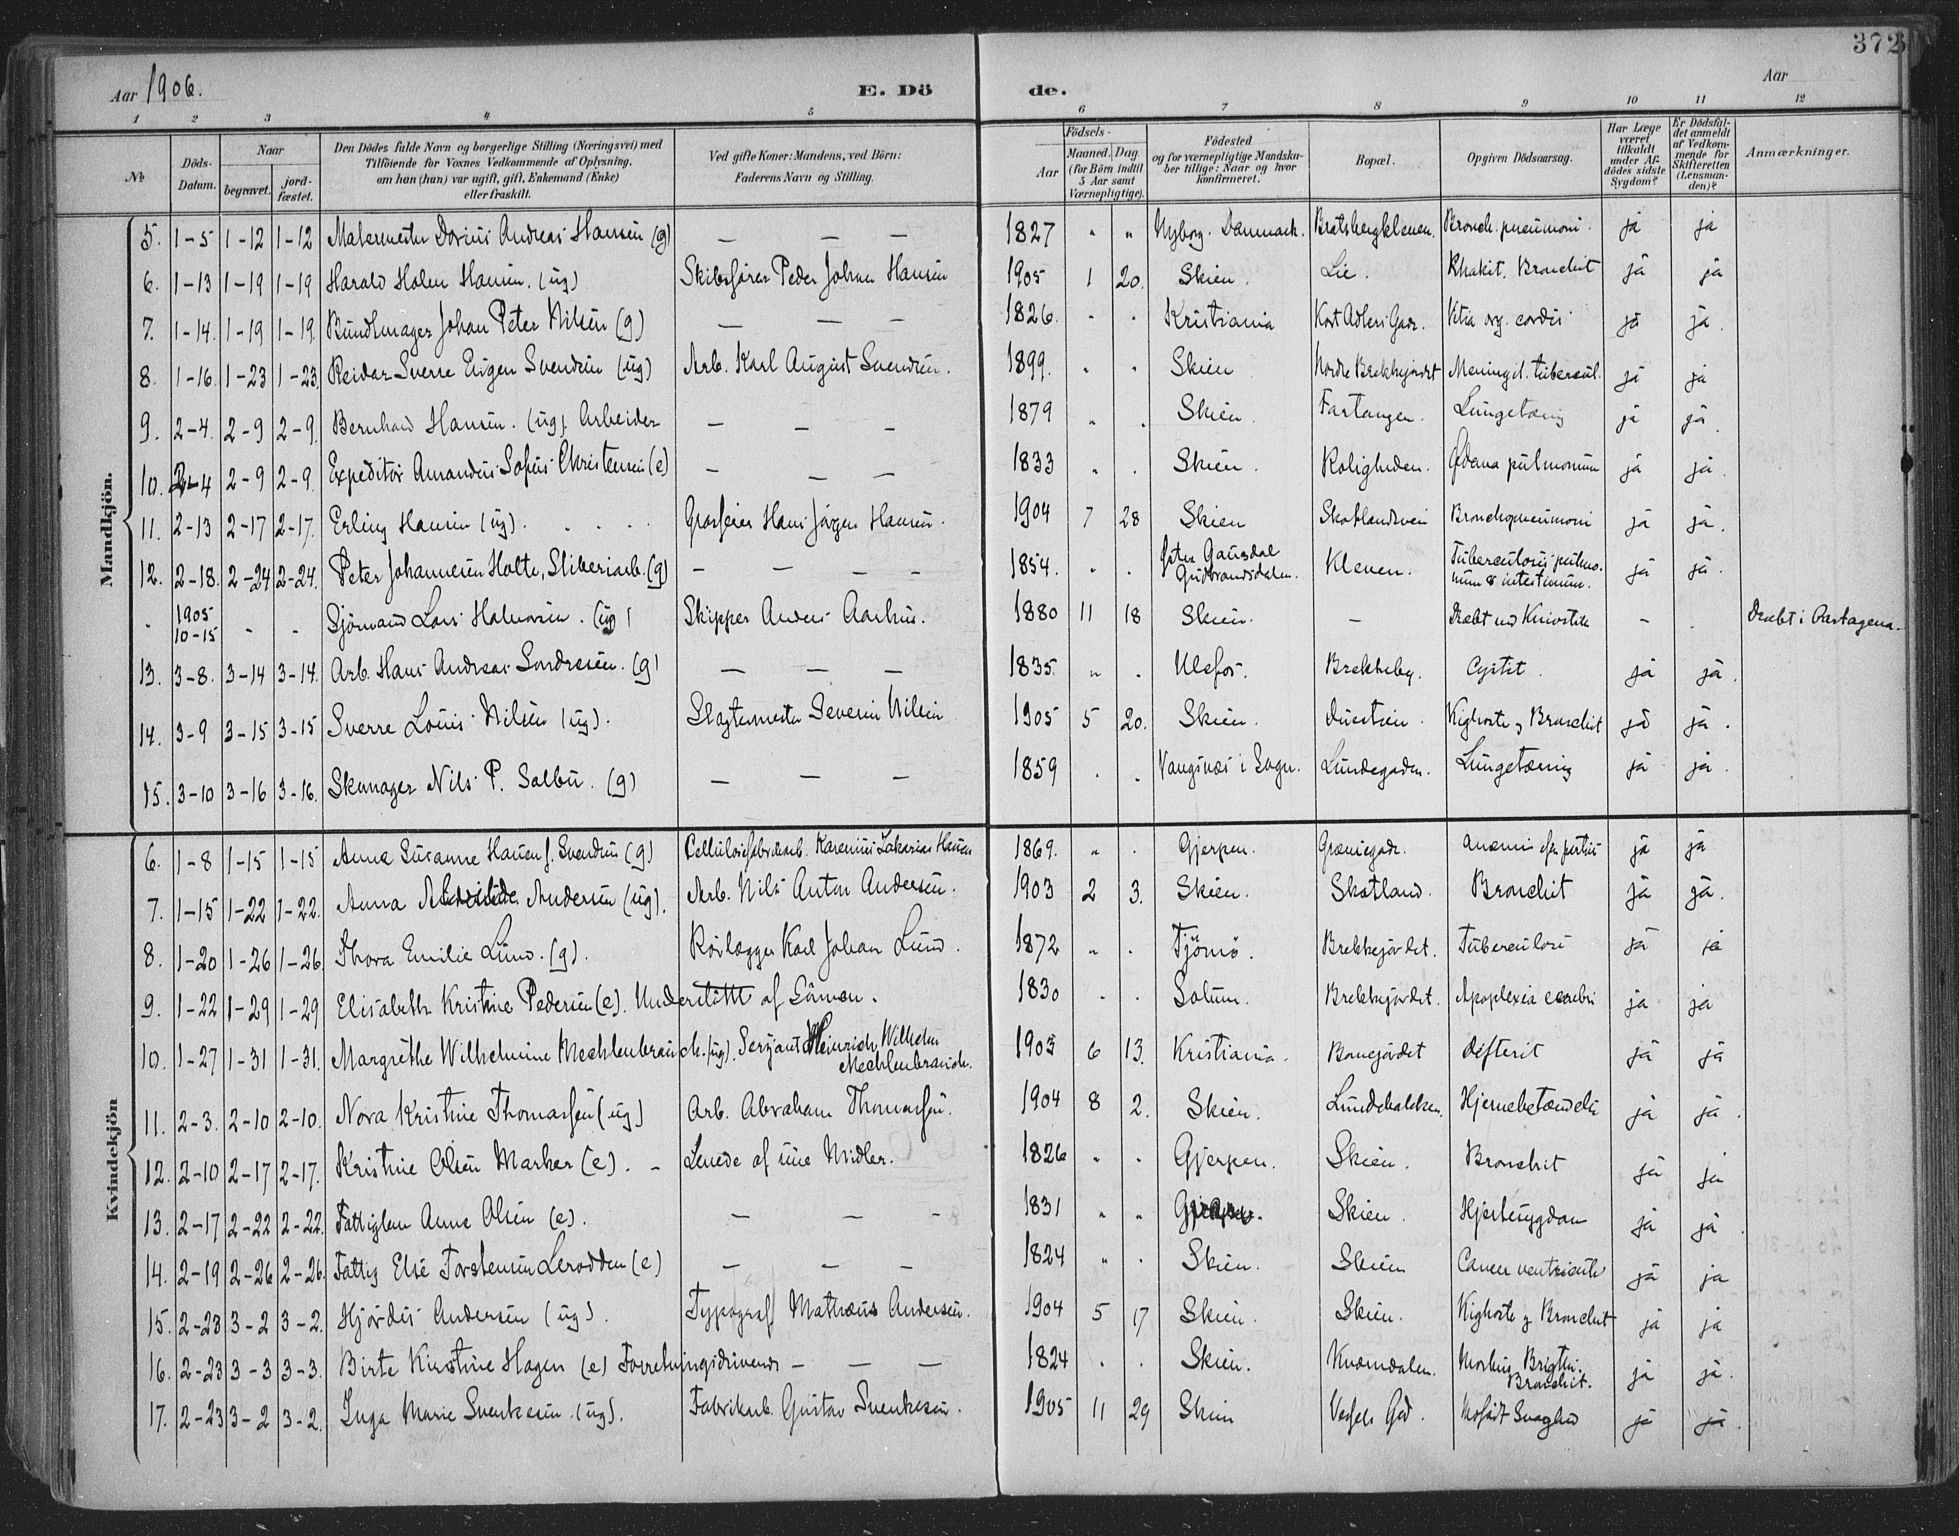 372
Aar 1906. E. Dö de. Aar
1 2 3 4 5 6 7 8 9 10 11 12
№ Döds-Datum. Naar begravet. jordfæstet. Den Dödes fulde Navn og borgerlige Stilling (Næringsvei) med Tilföiende for Voxnes Vedkommende af Oplysning, om han (hun) var ugift, gift, Enkemand (Enke) eller fraskilt. Ved gifte Koner: Mandens, ved Börn: Faderens Navn og Stilling. Födsels- Aar Maaned. Dag. (for Börn indtil 5 Aar samt Værnepligtige). Födested og for værnepligtige Mandskaber tillige: Naar og hvor konfirmeret. Bopæl. Opgiven Dödsaarsag. Har Læge været tilkaldt under Afdödes sidste Sygdom? Er Dödsfaldet anmeldt af Vedkommende for Skifteretten (Lensmanden)? Anmærkninger.
Mandkjön.
5. 1-5 1-12 1-12 Malermester Dorius Andreas Hansen (g) — — — 1827 " " Nyborg. Danmark. Bratsbergkleven. Bronch. pneumoni. ja ja
6. 1-13 1-19 1-19 Harald Holm Hansen. (ug) Skibsfører Peder Johan Hansen 1905 1 20. Skien. Lie. Rhakit. Bronchit ja ja
7. 1-14. 1-19 1-19. Bundtmager Johan Peter Nilsen (g) — — — 1826. " " Kristiania Kort Adlers Gade. Vitia org. cordis ja ja.
8. 1-16. 1-23 1-23. Reidar Sverre Eugen Svendsen (ug) Arb. Karl August Svendsen. 1899. " " Skien Nordre Brekkejordet Meningit. tubercul. ja ja
9. 2-4. 2-9 2-9. Bernhard Hansen. (ug). Arbeider — — — 1879 " . Skien. Fartangen. Lungetæring ja ja.
10. 2-4 2-9 2-9. Expeditør Amandus Sofus Christensen (e) — — — 1833 " . Skien. Roligheden. Ødema pulmonum ja ja.
11. 2-13 2-17 2-17. Erling Hansen (ug). Grosserer Hans Jørgen Hansen. 1904 7 28 Skien Skotlandsvei Bronchopneumoni ja ja.
12. 2-18. 2-24 2-24. Peter Johannesen Holte, Sliberiarb. (g) — — — — 1854. " . Østre Gausdal Gudbrandsdalen. Kleven. Tuberculosis pulmonum & intestinum. ja ja.
" 1905 10-15 - - Sjömand Lars Halvorsen. (ug) Skipper Anders Aarhus. 1880 11 18 Skien. — Dræbt ved Knivstik — . Dræbt i Cartagena.
13. 3-8. 3-14 3-14. Arb. Hans Andreas Sondresen. (g) — — — 1835 " . Ulefos. Brekkeby. Cystit. ja ja.
14. 3-9 3-15 3-15 Sverre Louis Nilsen (ug). Slagtermester Severin Nilsen 1905 5 20. Skien. Kighoste og Bronchit ja ja.
15. 3-10 3-16 3-16. Skomager Nils P. Salbu. (g) — — — 1859 . . Vangsnæs i Sogn. Lundegaden. Lungetæring ja ja.
Kvindekjön
6. 1-8 1-15 1-15 Anna Susanne Hansen f. Svendsen (g) Cellulosefabrikarb. Karenius Zakarias Hansen 1869. " . Gjerpen. Grønnegade. Anæmi efter partus ja ja
7. 1-15 1-22 1-22. Anna Andersen (ug). Arb. Nils Anton Andersen. 1903 2 3. Skien. Skotland. Bronchit ja ja.
8. 1-20 1-26 1-26. Thora Emilie Lund. (g). Rørlægger Karl Johan Lund. 1872 " . Tjömö. Brekkejordet. Tuberculose ja ja
9. 1-22 1-29 1-29 Elisabeth Kristine Pedersen (e). Understöttet af Sönnen. 1830 . . Solum. Brekkejordet. Apoplexia cerebri ja ja
10. 1-27 1-31 1-31. Margrethe Wilhelmine Mechlenbrauck. (ug). Serjant Heinrich Wilhelm Mechlenbrauck. 1903 6 13. Kristiania. Bønejordet Difterit ja ja
11. 2-3. 2-10 2-10. Nora Kristine Thomassen (ug) Arb. Abraham Thomassen. 1904 8 2. Skien. Lundebakken. Hjernebetændelse ja ja.
12. 2-10 2-17 2-17. Kristine Olsen Marker (e). - Levede af sine Midler. 1826 " . Gjerpen. Skien. Bronchit ja ja
13. 2-17 2-22 2-22. Fattiglem Anne Olsen (e). — — - 1831 " " Gjerpen. Skien. Hjertesygdom ja ja.
14. 2-19 2-26 2-26. Fattig Else Torstensen Lerodden (e) — — — 1824 " . Skien. Skien Cancer ventriculi ja ja
15. 2-23 3-2 3-2. Hjördis Andersen (ug). Typograf Mathæus Andersen. 1904 5 17 Skien. Skien. Kighoste og Bronchit ja ja
16. 2-23 3-3 3-3. Birte Kirstine Hagen (e) Forretningsdrivende — — — 1824 . . Skien. Kværndalen. Morbus Brightii. Bronchit. ja ja.
17. 2-23 3-2 3-2. Inga Marie Svenkesen (ug). Fabrikarb. Gustav Svenkesen. 1905 11 29 Skien Vessels Gd. Medfødt Svaghed ja ja.